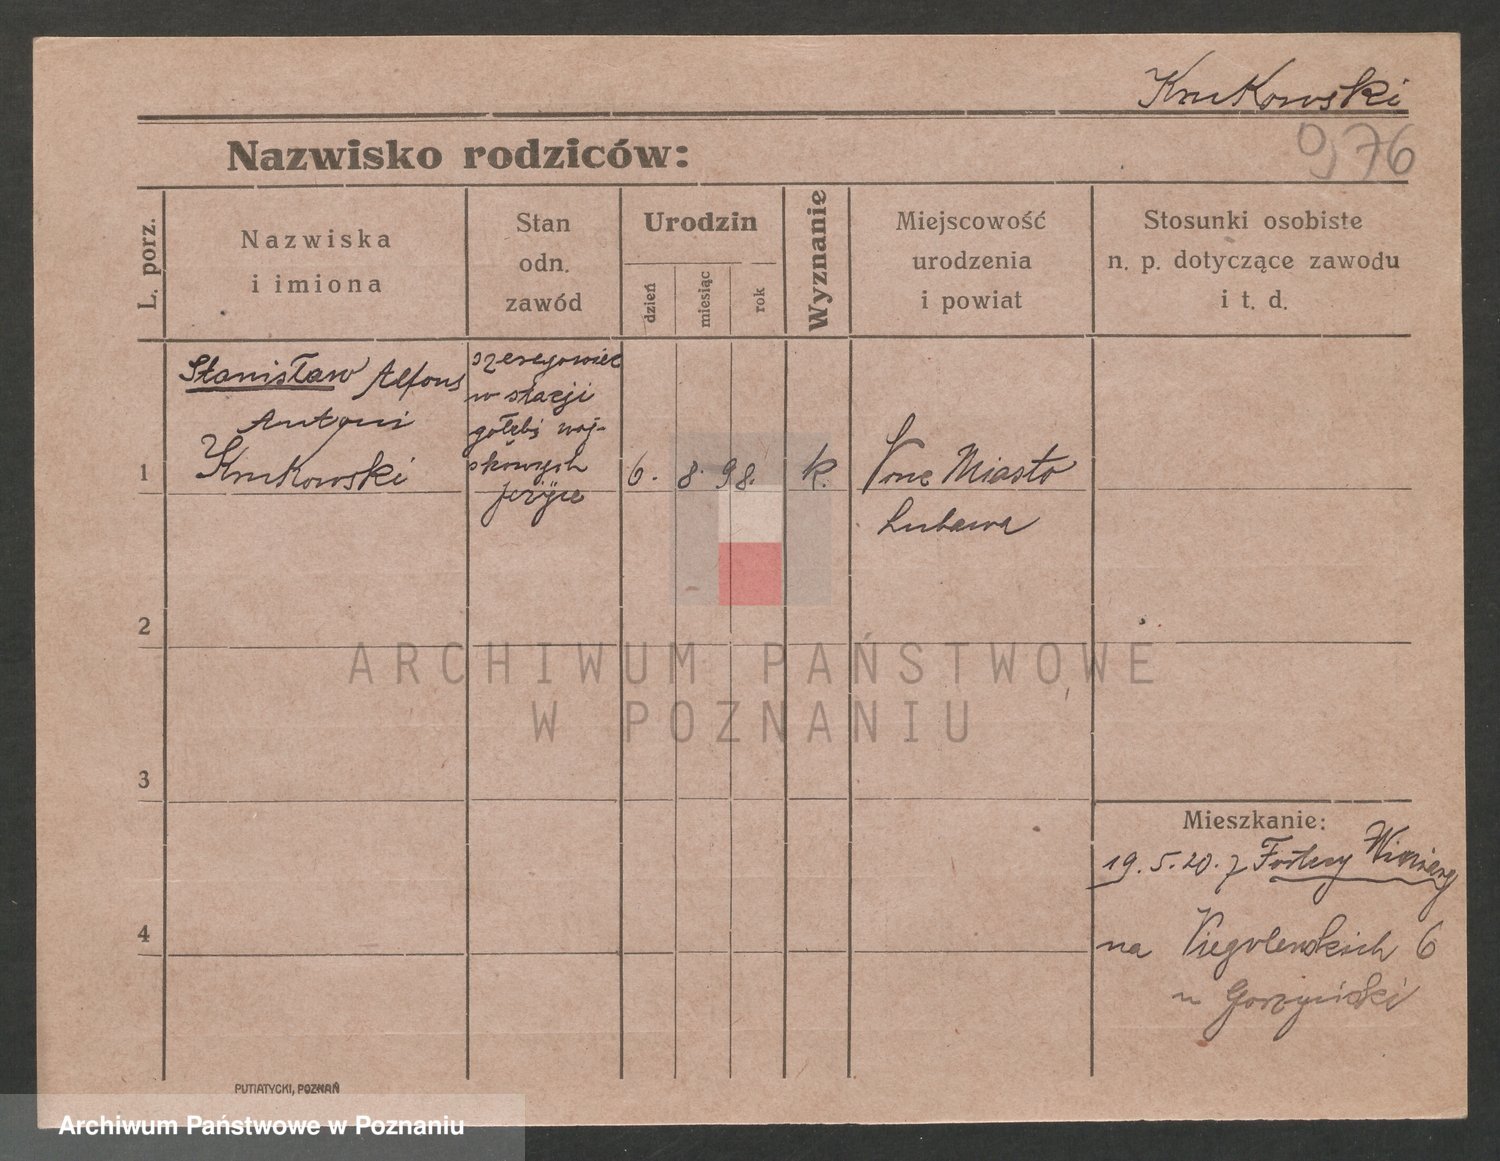 Krukowski
976
Nazwisko rodziców:
L. porz.
Nazwiska
i imiona
Stan
odn.
zawód
Urodzin
dzień
miesiąc
rok
Wyznanie
Miejscowość
urodzenia
i powiat
Stosunki osobiste
n. p. dotyczące zawodu
i t. d.
1
Stanisław Alfons
Antoni
Krukowski
szeregowiec
w stacji
gołębi woj-
skowych
Jeżyce
6. 8. 98.
k.
Miasto
Lubawa
2
ARCHIWUM PAŃSTWOWE
W POZNANIU
3
4
Mieszkanie:
19. 5. 20. z
na 6
Gorzyński
PUTIATYCKI, POZNAŃ
Archiwum Państwowe w Poznaniu